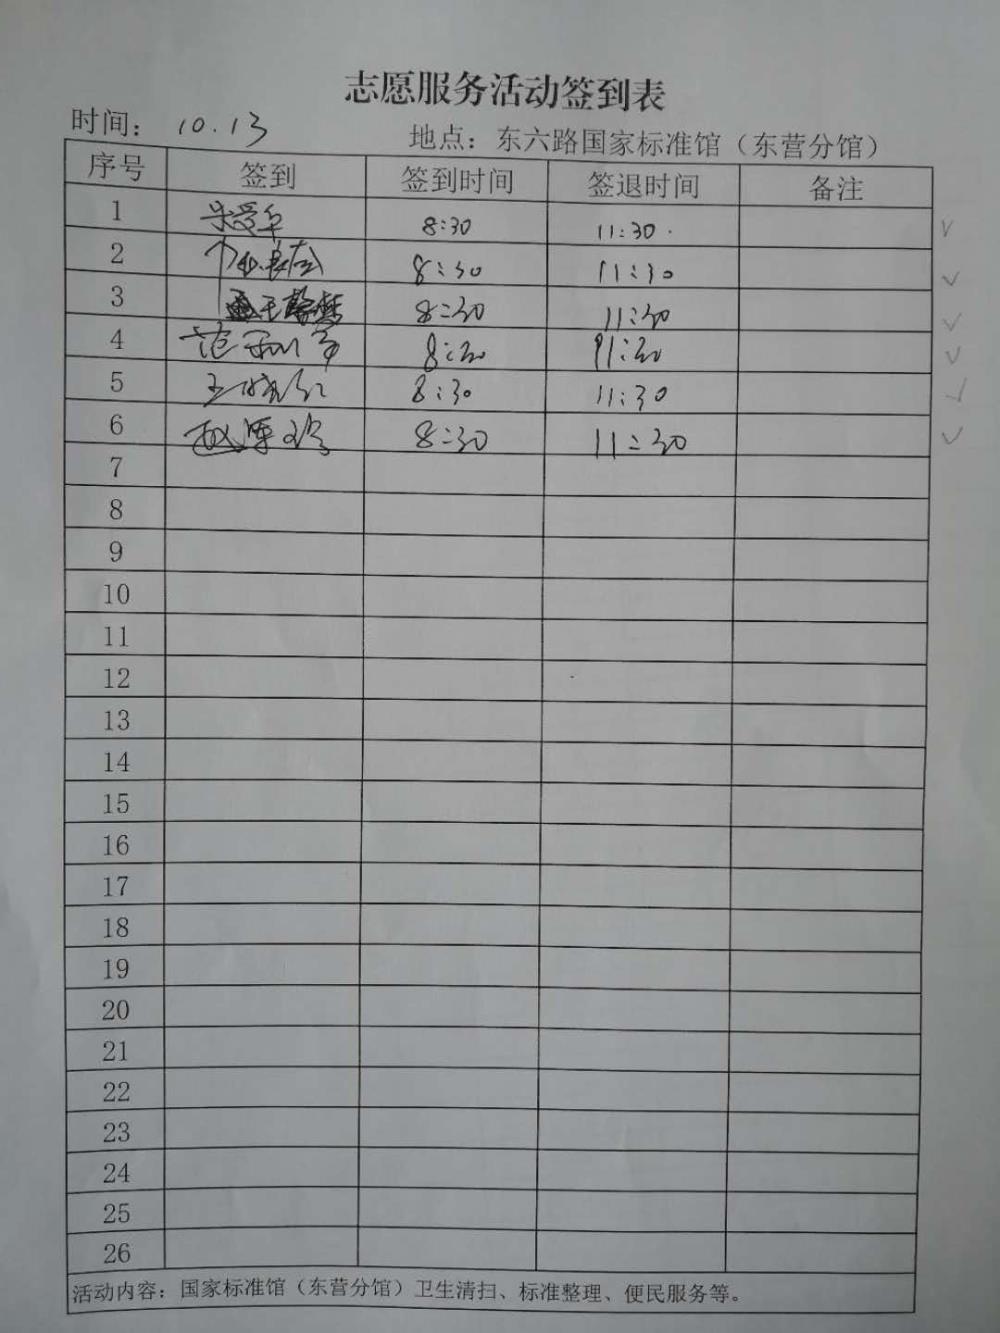 志愿服务活动签到表
时间： 10.13 地点：东六路国家标准馆（东营分馆）
序号 签到 签到时间 签退时间 备注
1 8:30 11:30
2 8:30 11:30
3 8:30 11:30
4 8:30 11:30
5 王晓红 8:30 11:30
6 8:30 11:30
7
8
9
10
11
12
13
14
15
16
17
18
19
20
21
22
23
24
25
26
活动内容：国家标准馆（东营分馆）卫生清扫、标准整理、便民服务等。